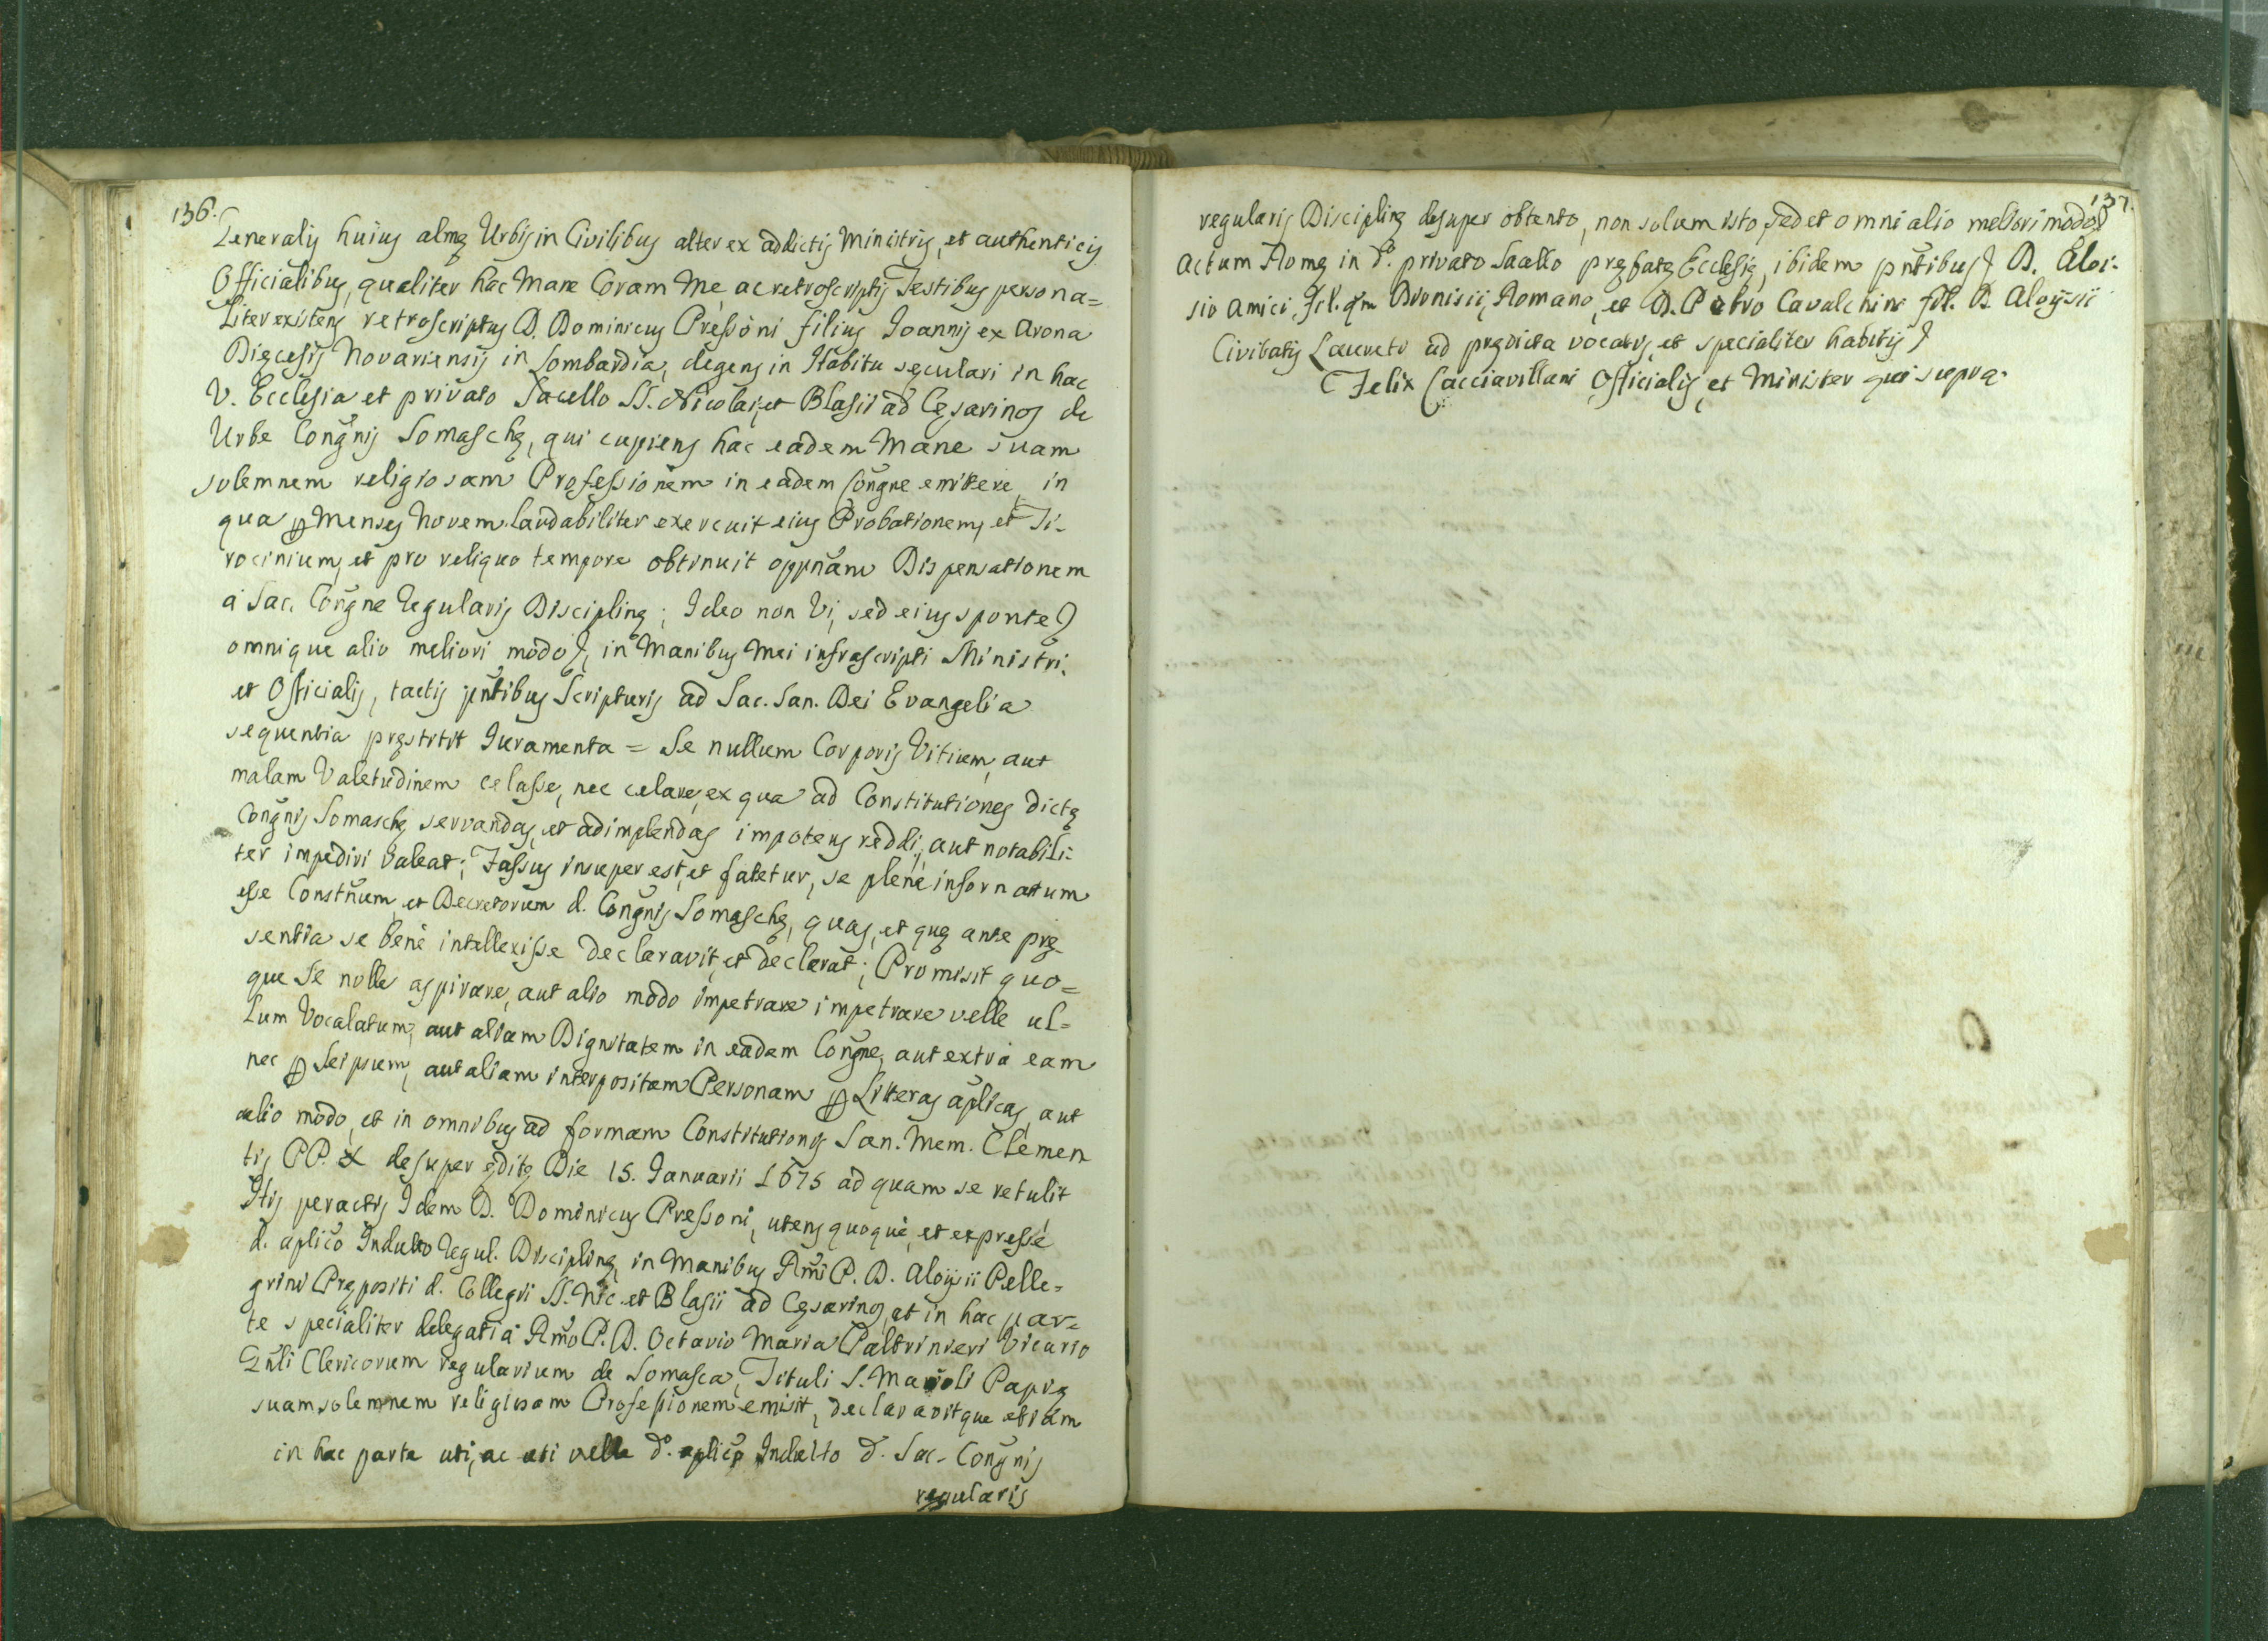 136.
Generalis huius almę Urbis in Civilibus alter ex addictis Ministris, et authenticis
Officialibus, qualiter hac Mane Coram Me, ac retroscriptis Testibus persona=
liter existens retroscriptus D. Dominicus Pressoni filius Joannis ex Arona
Dięcesis Novariensis in Lombardia, degens in Habitu sęculari in hac
V. Ecclesia et privato Sacello SS. Nicolai, et Blasii ad Cęsarinos de
Urbe Congñis Somaschę, qui cupiens hac eadem Mane suam
solemnem religiosam Professionem in eadem Congñe emittere, in
qua p Menses Novem laudabiliter exercuit eius Probationem, et Ti-
rocinium, et pro reliquo tempore obtinuit oppñam Dispensationem
à Sac. Congñe Regularis Disciplinę; Ideo non Vi, sed eius sponte)
omnique alio meliori modo), in Manibus Mei infrascripti Ministri,
et Officialis, tactis pñtibus Scripturis ad Sac. San. Dei Evangelia
sequentia pręstitit Iuramenta = Se nullum Corporis Vitium, aut
malam Valetudinem celasse, nec celare, ex qua ad Constitutiones dictę
Congñis Somaschę servandas, et adimplendas impotens reddi, aut notabili-
ter impediri valeat; Fassus insuper est, et fatetur, se plenè informatum
esse Constñum et Decretorum d. Congñis Somaschę, quas, et quę ante prę-
sentia se benè intellexisse declaravit, et declarat; Promisit quo=
que Se nolle aspirare, aut alio modo impetrare impetrare velle ul=
lum Vocalatum, aut aliam Dignitatem in eadem Congñe, aut extra eam
nec p seipsum, aut aliam interpositam Personam p Litteras aplicas, aut
alio modo, et in omnibus ad formam Constitutionis San. Mem. Clemen
tis PP. X desuper ędite Die 15. Januarii 1675 ad quam se retulit
Htis peractis Idem D. Dominicus Pressoni, utens quoquè, et expressè
d. aplico Indulto Regul. Disciplinę, in Manibus Rmi P. D. Aloysii Pelle=
grini Prępositi d. Collegii SS. Nic. et Blasii ad Cęsarinos, et in hac par=
te specialiter delegati à Rmo P. D. Octavio Maria Paltrinieri Vicario
Gnli Clericorum regularium de Somasca, Tituli S. Maioli Papię
suam solemnem religiosam Professionem emisit, declaravitque etiam
in hac parte uti, ac uti velle do. aplico Indulto d. Sac. Congñis
regularis
137.
regularis Disciplinę desuper obtento, non solum isto, sed et omni alio meliori modo)
Actum Romę in do. privato Sacello pręfatę Ecclesię, ibidem pñtibus) D. Aloi-
sio Amici, fil. qm Dionisii, Romano, et D. Petro Cavalchini fil. D. Aloysii
Civitatis Laureti ad prędicta vocatis, et specialiter habitis)
Felix Cacciavillani Officialis, et Minister qui supra.